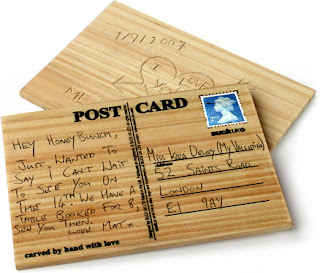 1/9/2007
I
ME
YOU
POST CARD
2nd
SUCKUK
HEY HONEYBUNCH,
JUST WANTED TO
SAY I CAN'T WAIT
TO SEE YOU ON
THE 14TH WE HAVE A
TABLE BOOKED FOR 8,
SEE YOU THEN.
LOVE MAT X
MISS KIRA DELOY (MY VALENTINE)
52 SAINTS ROAD
LONDON
E1 9AY
carved by hand with love